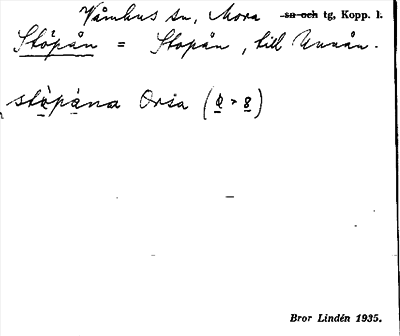 Våmhus sn, Mora sn och tg, Kopp. l.
Stöpån = Stopån, till Unnån.
stöpåna Orsa (
Bror Lindén 1935.